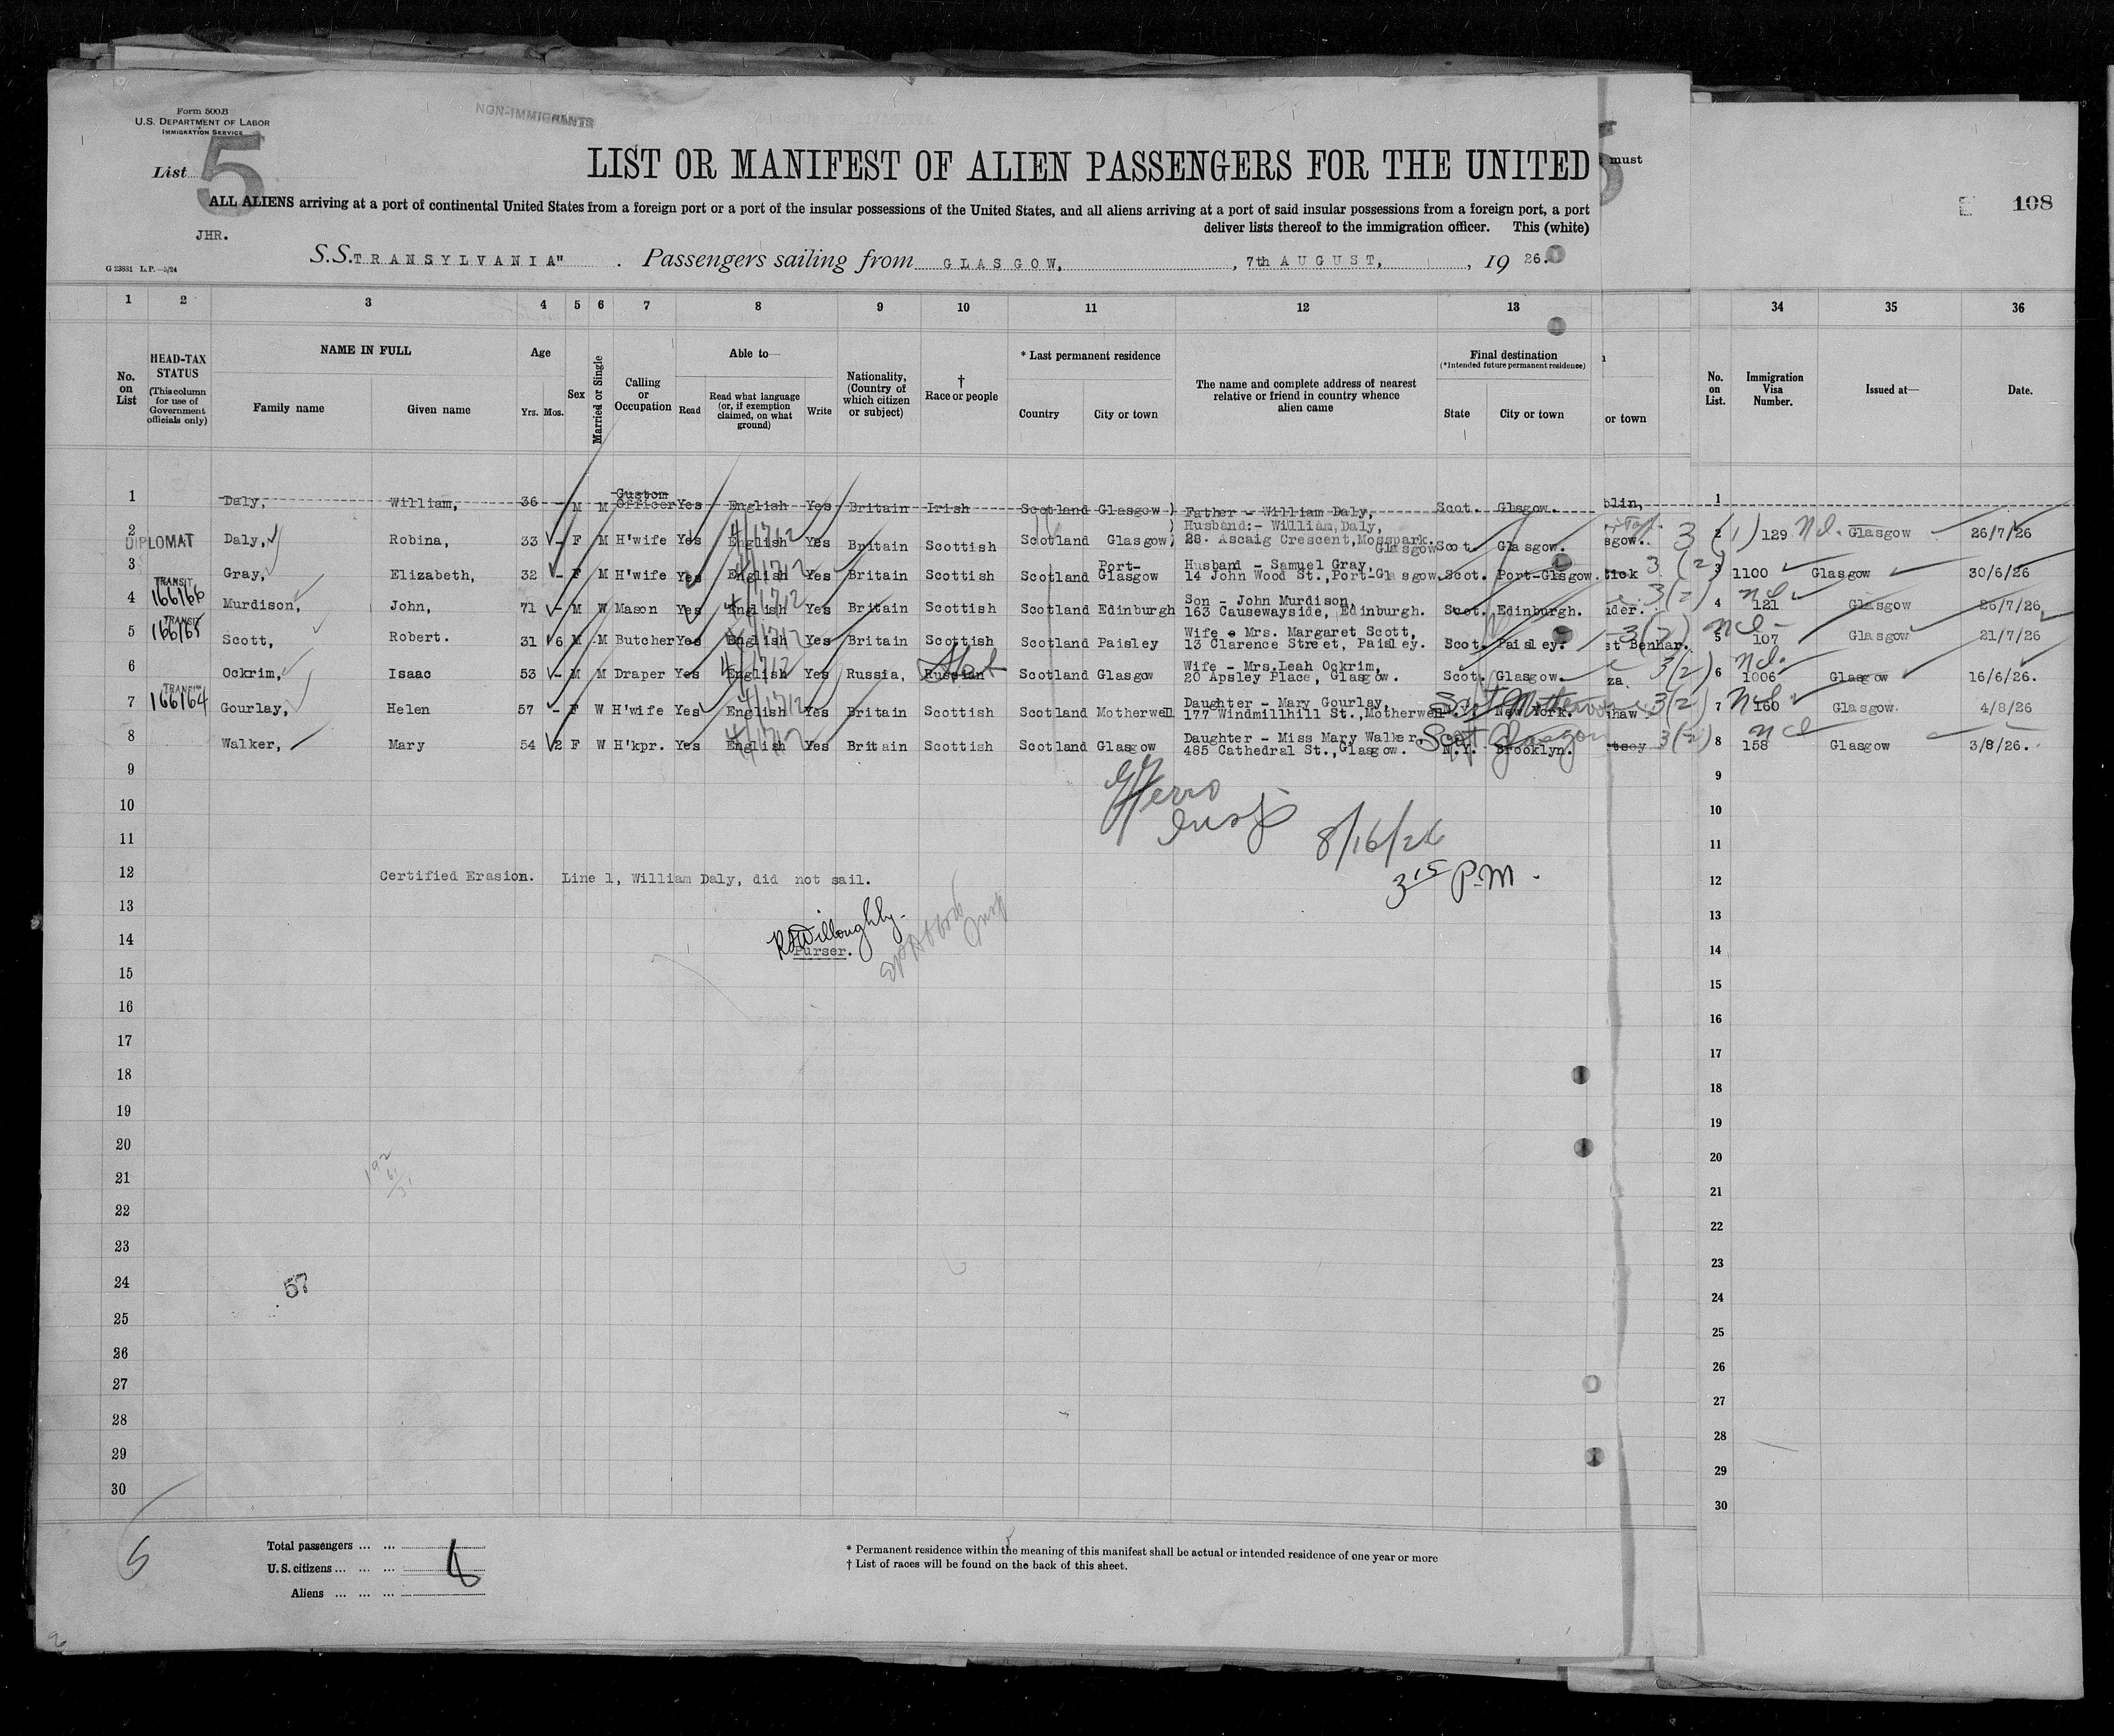 Form 500B
U.S. DEPARTMENT OF LABOR
IMMIGRATION SERVICE
NON-IMMIGRANTS
List 5
JHR.
G 23881 L.P.—5/24
LIST OR MANIFEST OF ALIEN PASSENGERS FOR THE UNITED
must
108
ALL ALIENS arriving at a port of continental United States from a foreign port or a port of the insular possessions of the United States, and all aliens arriving at a port of said insular possessions from a foreign port, a port
deliver lists thereof to the immigration officer. This (white)
S.S. TRANSYLVANIA" . Passengers sailing from GLASGOW, , 7th AUGUST, , 19 26.
1 2 3 4 5 6 7 8 9 10 11 12 13 34 35 36
No. on List
HEAD-TAX STATUS (This column for use of Government officials only)
NAME IN FULL
Family name Given name
Age
Yrs. Mos.
Sex
Married or Single
Calling or Occupation
Able to—
Read
Read what language (or, if exemption claimed, on what ground)
Write
Nationality, (Country of which citizen or subject)
† Race or people
* Last permanent residence
Country City or town
The name and complete address of nearest relative or friend in country whence alien came
Final destination
(*Intended future permanent residence)
State City or town
or town
No. on List.
Immigration Visa Number.
Issued at—
Date.
1 Daly, William, 36 - M M Custom Officer Yes English Yes Britain Irish Scotland Glasgow ) Father - William Daly, Scot. Glasgow. blin, 1
2 DIPLOMAT Daly, Robina, 33 - F M H'wife Yes English 4/1712 Yes Britain Scottish Scotland Glasgow) Husband:- William, Daly, 28. Ascaig Crescent, Mosspark. Glasgow Scot. Glasgow. sgow. 3 (1) 2 129 Glasgow 26/7/26
3 Gray, Elizabeth, 32 - F M H'wife Yes English 4/1712 Yes Britain Scottish Scotland Port-Glasgow Husband - Samuel Gray, 14 John Wood St., Port-Glasgow. Scot. Port-Glasgow. tick 3 (2) 3 1100 Glasgow 30/6/26
4 TRANSIT 166166 Murdison, John, 71 - M W Mason Yes English 4/1712 Yes Britain Scottish Scotland Edinburgh Son - John Murdison, 163 Causewayside, Edinburgh. Scot. Edinburgh. der. 3(2) 4 121 Glasgow 26/7/26
5 TRANSIT 166165 Scott, Robert. 31 6 M M Butcher Yes English 4/1712 Yes Britain Scottish Scotland Paisley Wife - Mrs. Margaret Scott, 13 Clarence Street, Paisley. Scot. Paisley. st Benhar. 3(2) 5 107 Glasgow 21/7/26
6 Ockrim, Isaac 53 - M M Draper Yes English 4/1712 Yes Russia, Russian Scotland Glasgow Wife - Mrs. Leah Ockrim, 20 Apsley Place, Glasgow. Scot. Glasgow. za 3(2) 6 1006 Glasgow 16/6/26.
7 TRANSIT 166164 Gourlay, Helen 57 - F W H'wife Yes English 4/1712 Yes Britain Scottish Scotland Motherwell Daughter - Mary Gourlay, 177 Windmillhill St., Motherwell Scot New York. Motherwell haw 3(2) 7 160 Glasgow. 4/8/26
8 Walker, Mary 54 2 F W H'kpr. Yes English 4/1712 Yes Britain Scottish Scotland Glasgow Daughter - Miss Mary Walker, 485 Cathedral St., Glasgow. N.Y. Scot Brooklyn. Glasgow 3(2) 8 158 Glasgow 3/8/26.
9 9
10 10
11 11
Insp
8/16/26
3 15 P.M.
12 Certified Erasion. Line 1, William Daly, did not sail. 12
13 13
R Willoughby.
14 Purser. 14
Insp
15 15
16 16
17 17
18 18
19 19
20 20
21 21
22 22
23 23
24 57 24
25 25
26 26
27 27
28 28
29 29
30 30
Total passengers ... ...
U.S. citizens ... ... ...
Aliens ... ... ... ...
* Permanent residence within the meaning of this manifest shall be actual or intended residence of one year or more
† List of races will be found on the back of this sheet.